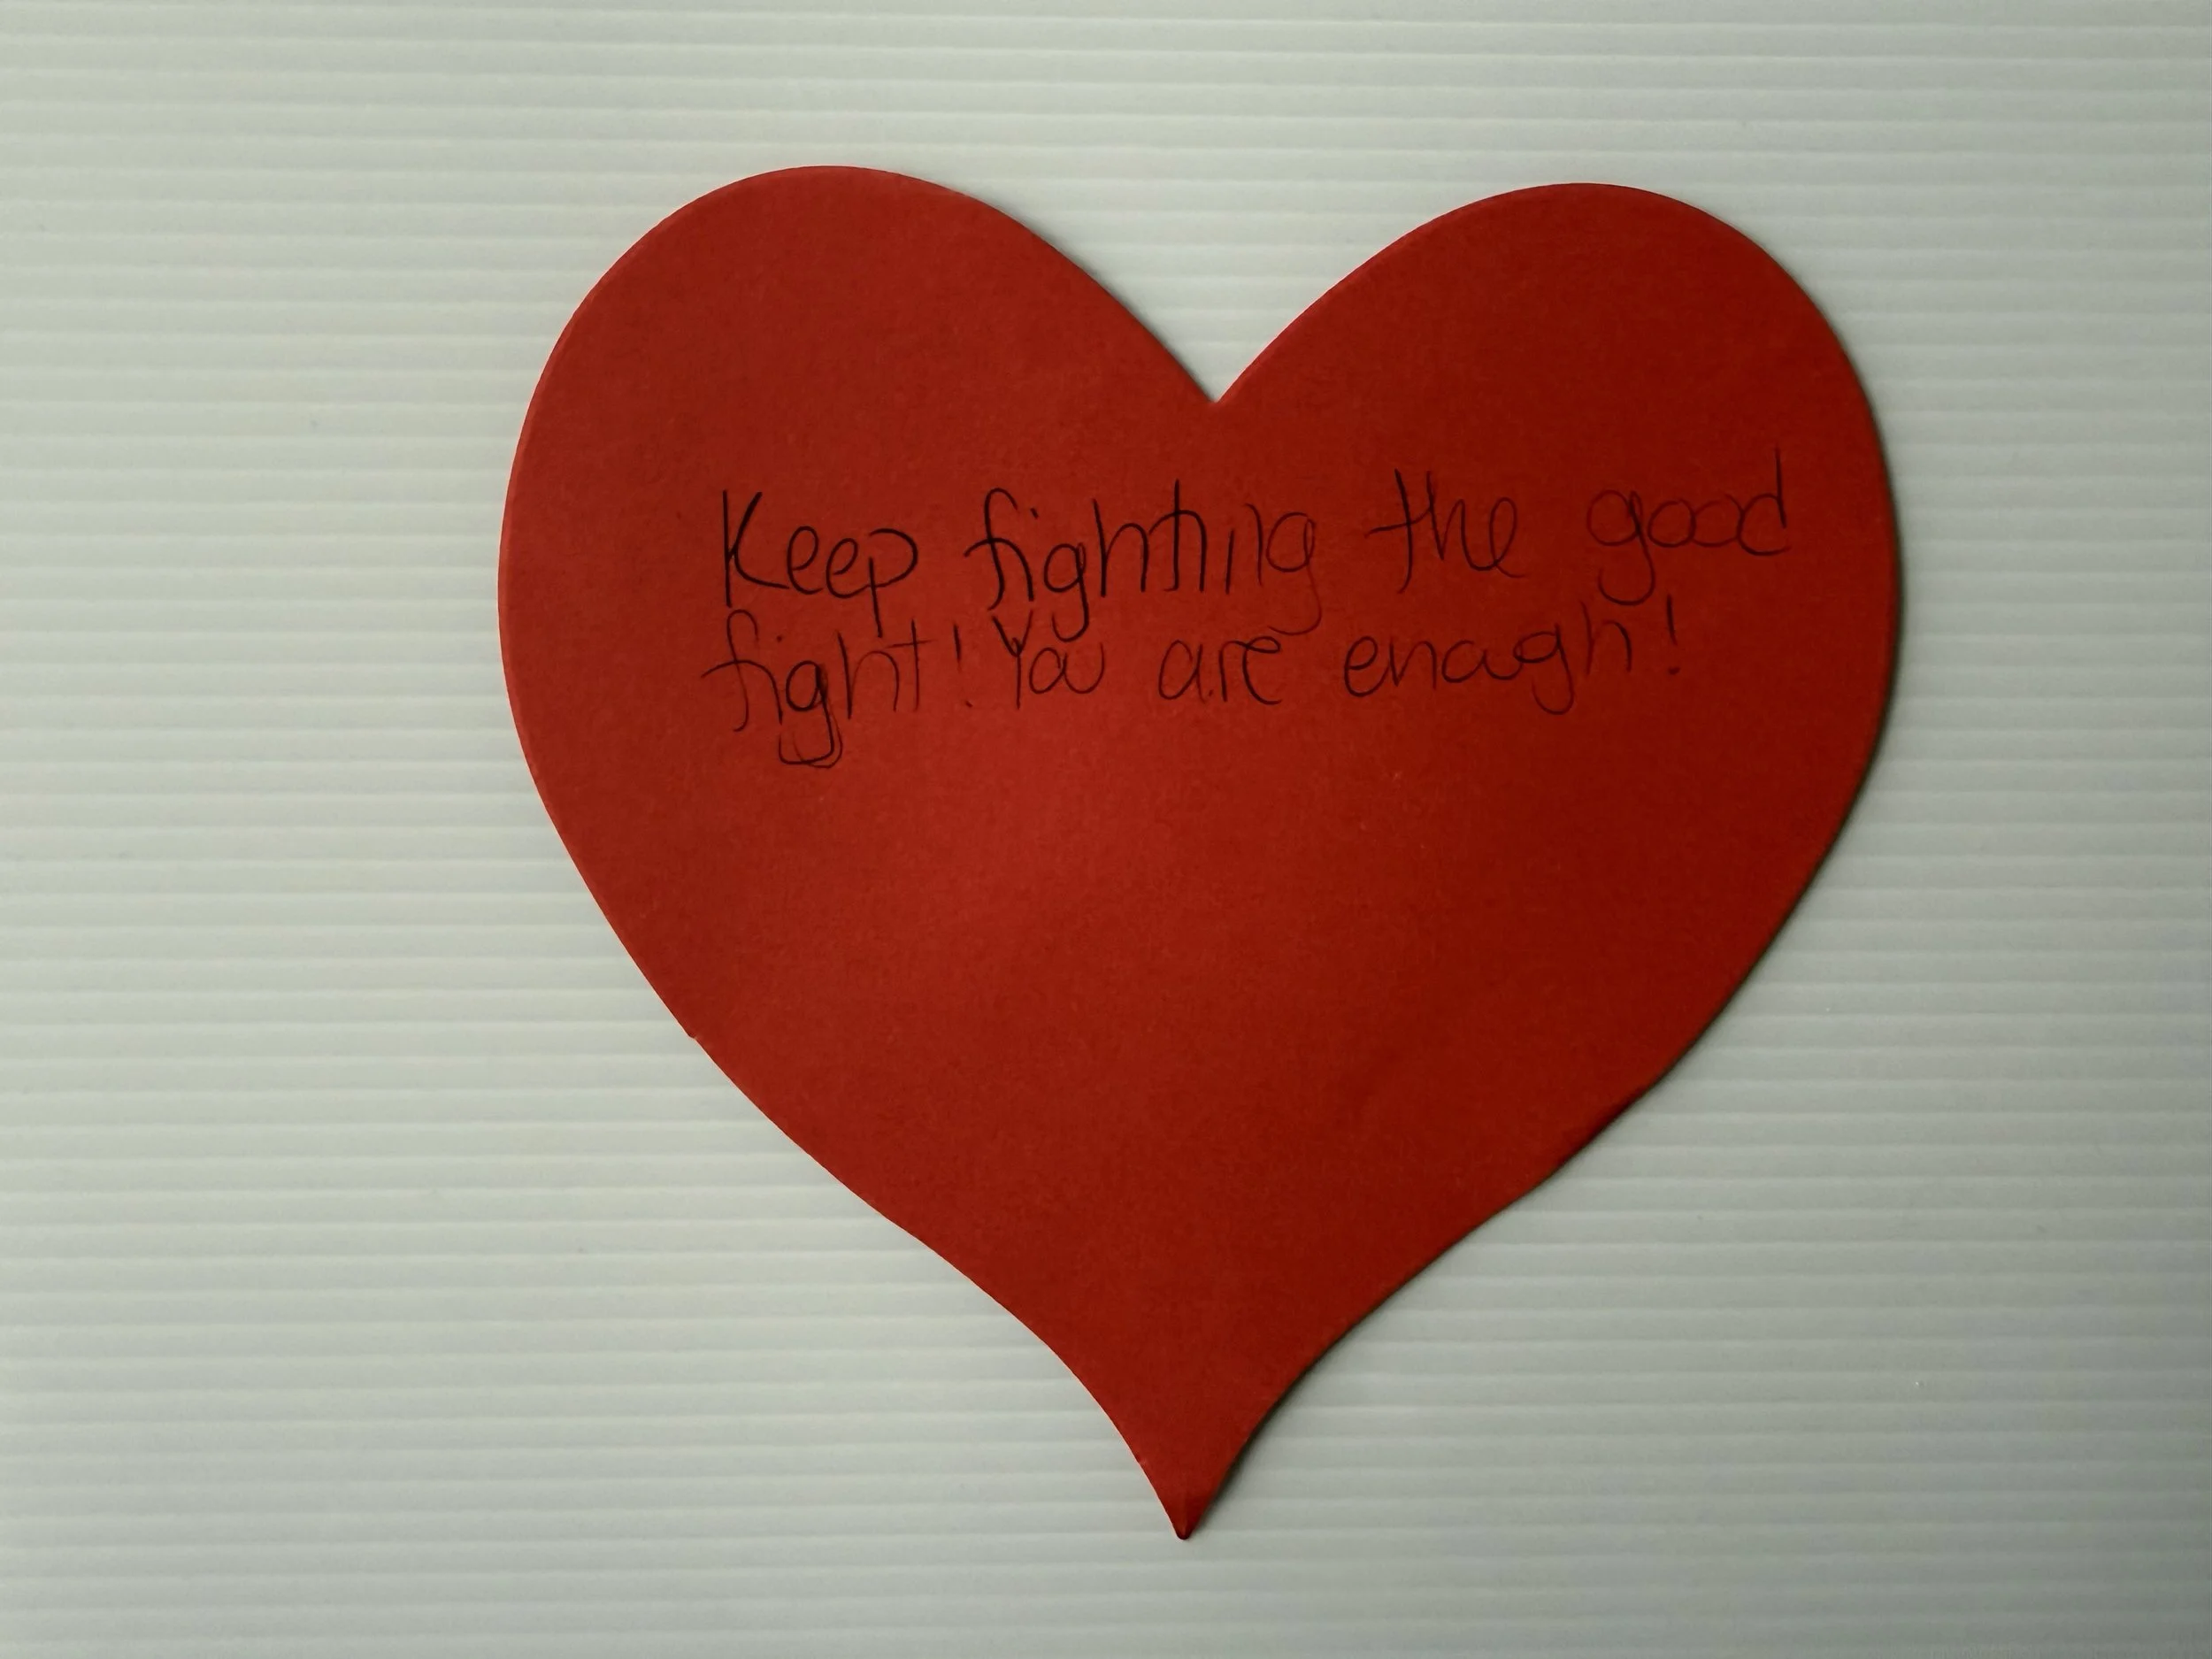 Keep fighting the good
fight! You are enough!